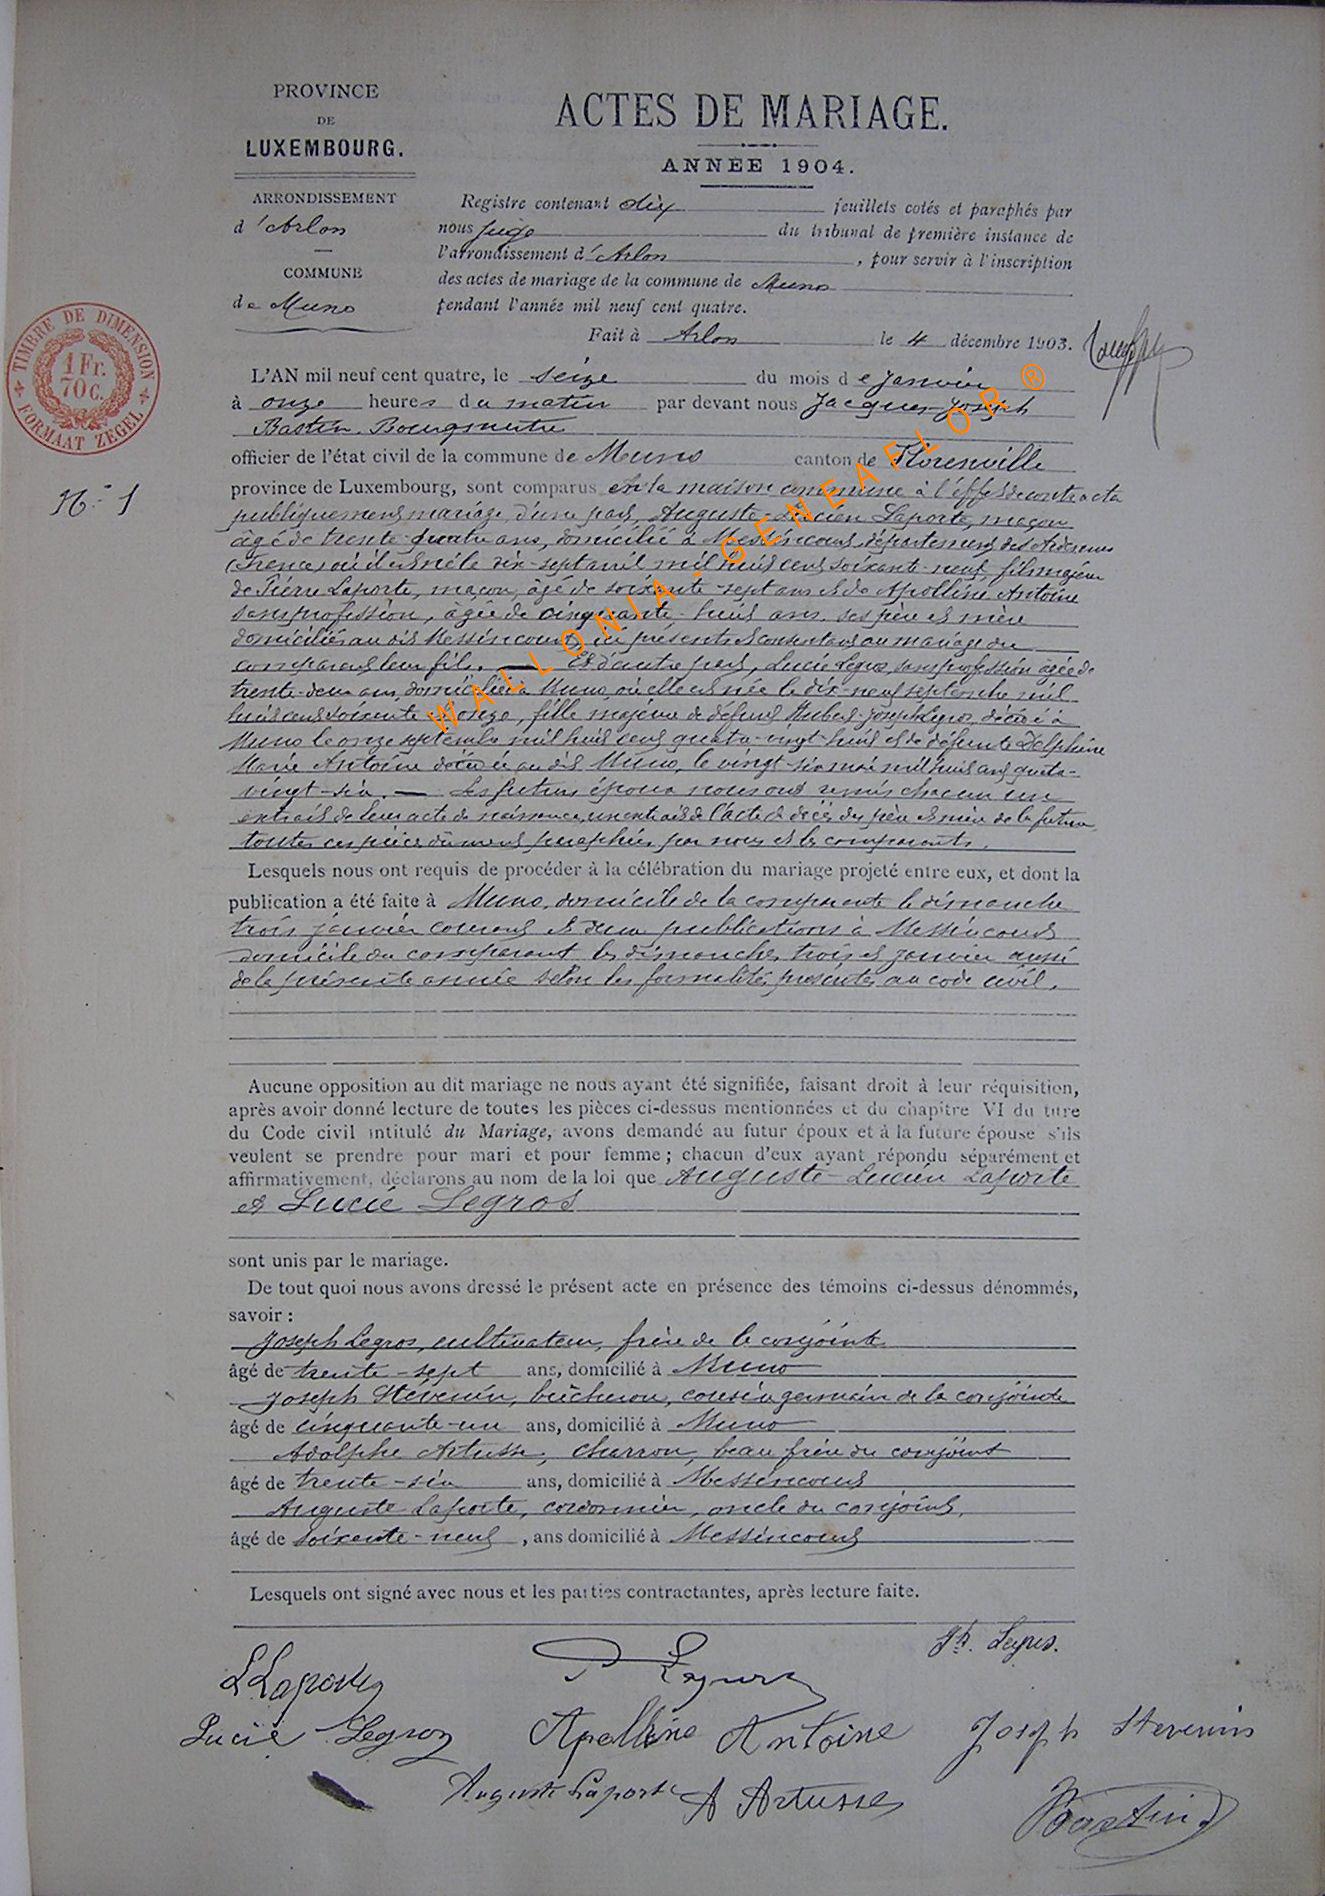 PROVINCE
DE
LUXEMBOURG.
ARRONDISSEMENT
d'Arlon
COMMUNE
de Muno
ACTES DE MARIAGE.
ANNÉE 1904.
Registre contenant dix feuillets cotés et paraphés par
nous juge du tribunal de première instance de
l'arrondissement d'Arlon, pour servir à l'inscription
des actes de mariage de la commune de Muno
pendant l'année mil neuf cent quatre.
Fait à Arlon le 4 décembre 1903.
TIMBRE DE DIMENSION
1 Fr.
70 c.
FORMAAT ZEGEL
N° 1
L'AN mil neuf cent quatre, le seize du mois de Janvier
à onze heures du matin par devant nous Jacques-Joseph
Bastin, Bourgmestre
officier de l'état civil de la commune de Muno canton de Florenville
province de Luxembourg, sont comparus en la maison commune à l'effet de contracter
publiquement mariage, d'une part, Auguste-Lucien Laporte, maçon
âgé de trente-quatre ans, domicilié à Messincourt, département des Ardennes
(France) où il est né le dix-sept avril mil huit cent soixante-neuf, fils majeur
de Pierre Laporte, maçon, âgé de soixante-sept ans et de Apolline Antoine
sans profession, âgée de cinquante-huit ans, ses père et mère
domiciliés au dit Messincourt, ici présents et consentant au mariage du
comparant, leur fils. — Et d'autre part, Lucie Legros, sans profession âgée de
trente-deux ans, domiciliée à Muno, où elle est née le dix-neuf septembre mil
huit cent soixante onze, fille majeure de défunt Hubert-Joseph Legros, décédé à
Muno le onze septembre mil huit cent quatre-vingt-huit et de défunte Delphine
Marie Antoine décédée au dit Muno, le vingt-six mai mil huit cent quatre-
vingt-six. — Les futurs époux nous ont remis chacun un
extrait de leur acte de naissance, un extrait de l'acte de décès des père et mère de la future
toutes ces pièces dûment paraphées par nous et les comparants.
Lesquels nous ont requis de procéder à la célébration du mariage projeté entre eux, et dont la
publication a été faite à Muno, domicile de la comparante le dimanche
trois janvier courant et deux publications à Messincourt
domicile du comparant les dimanches trois et janvier aussi
de la présente année selon les formalités prescrites au code civil.
Aucune opposition au dit mariage ne nous ayant été signifiée, faisant droit à leur réquisition,
après avoir donné lecture de toutes les pièces ci-dessus mentionnées et du chapitre VI du titre
du Code civil intitulé du Mariage, avons demandé au futur époux et à la future épouse s'ils
veulent se prendre pour mari et pour femme ; chacun d'eux ayant répondu séparément et
affirmativement, déclarons au nom de la loi que Auguste-Lucien Laporte
et Lucie Legros
sont unis par le mariage.
De tout quoi nous avons dressé le présent acte en présence des témoins ci-dessus dénommés,
savoir :
Joseph Legros, cultivateur, frère de la conjointe
âgé de trente-sept ans, domicilié à Muno
Joseph Stévenin, bûcheron, cousin germain de la conjointe
âgé de cinquante-un ans, domicilié à Muno
Adolphe Artusse, charron, beau frère du conjoint
âgé de trente-six ans, domicilié à Messincourt
Auguste Laporte, cordonnier, oncle du conjoint,
âgé de soixante-neuf, ans domicilié à Messincourt
Lesquels ont signé avec nous et les parties contractantes, après lecture faite.
Jh. Legros.
L Laporte
Lucie Legros
Apolline Antoine
Joseph Stevenin
Auguste Laporte
A Artusse
Bastin
WALLONIA-GENEAFLOR®